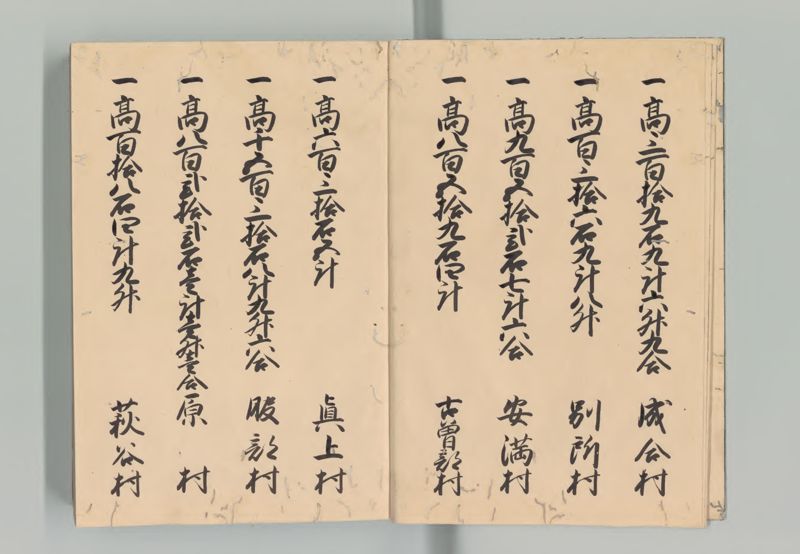 一高三百拾九石九斗六升九合 成合村
一高百三拾六石九斗八升 別所村
一高九百五拾弐石七斗六合 安満村
一高八百五拾九石四斗 古曽部村
一高六百三拾石五斗 真上村
一高千五百三拾石八斗九升六合 服部村
一高八百弐拾弐石壱斗壱升壱合 原村
一高百拾八石四斗九升 萩谷村